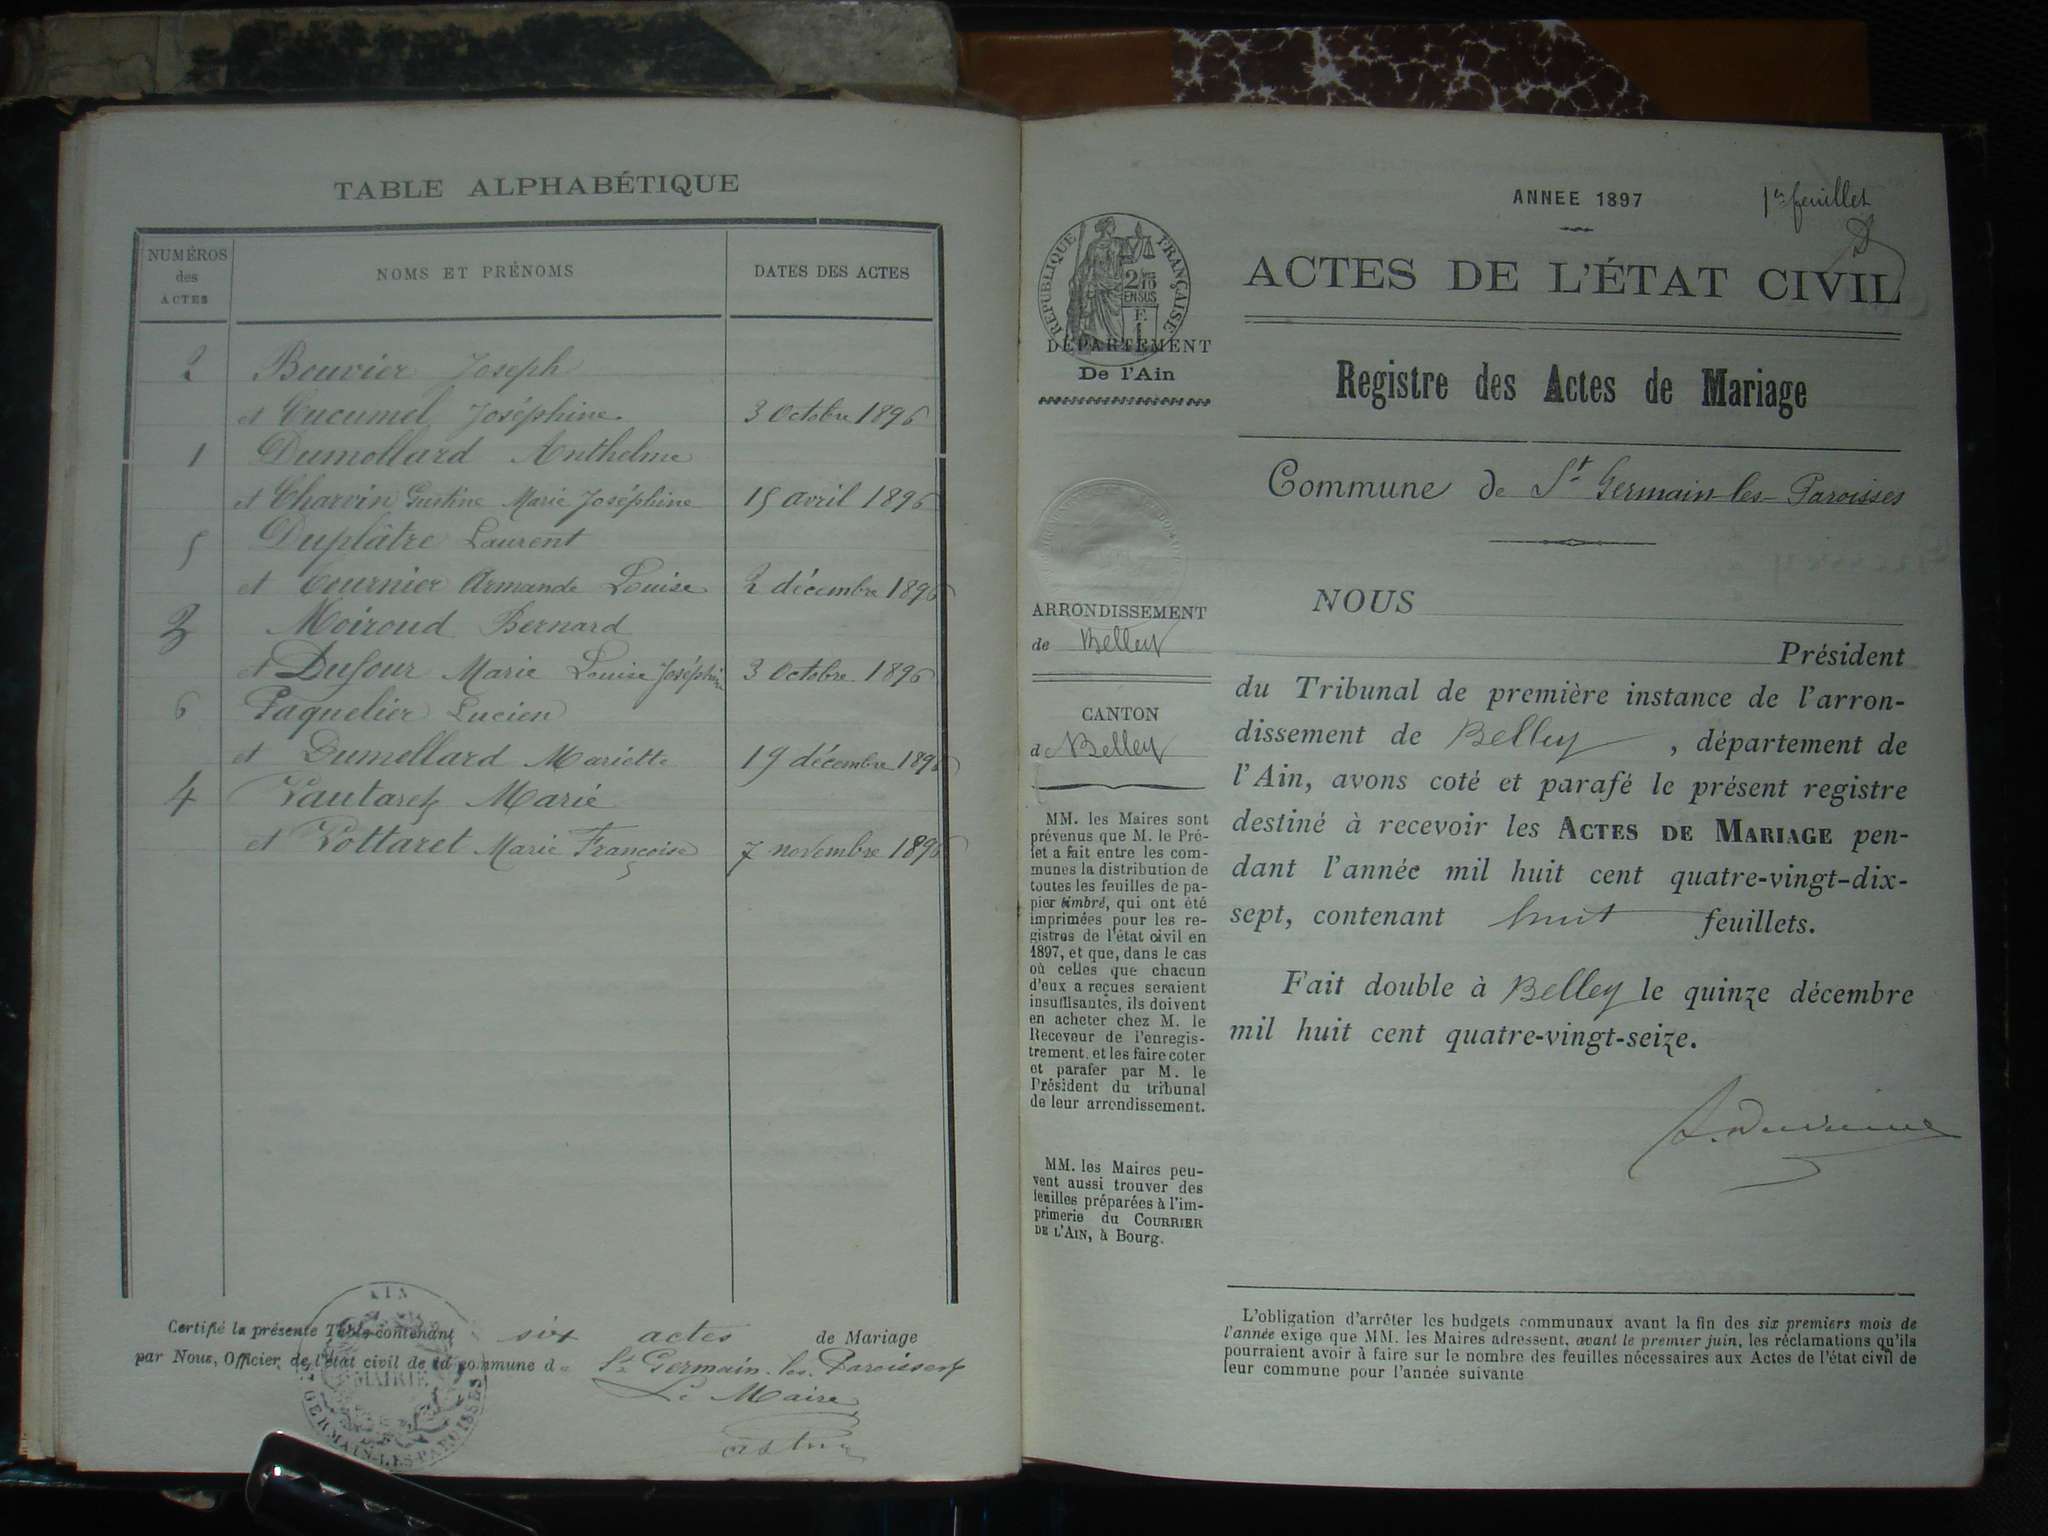 TABLE ALPHABÉTIQUE
NUMÉROS des ACTES
NOMS ET PRÉNOMS
DATES DES ACTES
2 Bouvier Joseph
et Cucumel Joséphine 3 Octobre 1896
1 Dumollard Anthelme
et Charvin Justine Marie Joséphine 15 avril 1896
5 Duplâtre Laurent
et Tournier Armande Louise 2 décembre 1896
3 Moiroud Bernard
et Dufour Marie Louise Joséphine 3 Octobre 1896
6 Paquelier Lucien
et Dumollard Mariette 19 décembre 1896
4 Vautaretz Marie
et Pottaret Marie Françoise 7 novembre 1896
Certifié la présente Table contenant six actes de Mariage
par Nous, Officier de l'état civil de la commune de St Germain-les-Paroisses
Le Maire
AIN
MAIRIE
GERMAIN-LES-PAROISSES
ANNEE 1897
1er feuillet
RÉPUBLIQUE FRANÇAISE
2/10 EN SUS
F. 1
DÉPARTEMENT
De l'Ain
ACTES DE L'ÉTAT CIVIL
Registre des Actes de Mariage
Commune de St Germain-les-Paroisses
ARRONDISSEMENT
de Belley
CANTON
de Belley
MM. les Maires sont
prévenus que M. le Pré-
fet a fait entre les com-
munes la distribution de
toutes les feuilles de pa-
pier timbré, qui ont été
imprimées pour les re-
gistres de l'état civil en
1897, et que, dans le cas
où celles que chacun
d'eux a reçues seraient
insuffisantes, ils doivent
en acheter chez M. le
Receveur de l'enregis-
trement, et les faire coter
et parafer par M. le
Président du tribunal
de leur arrondissement.
MM. les Maires peu-
vent aussi trouver des
feuilles préparées à l'im-
primerie du COURRIER
DE L'AIN, à Bourg.
NOUS
Président
du Tribunal de première instance de l'arron-
dissement de Belley, département de
l'Ain, avons coté et parafé le présent registre
destiné à recevoir les ACTES DE MARIAGE pen-
dant l'année mil huit cent quatre-vingt-dix-
sept, contenant huit feuillets.
Fait double à Belley le quinze décembre
mil huit cent quatre-vingt-seize.
L'obligation d'arrêter les budgets communaux avant la fin des six premiers mois de
l'année exige que MM. les Maires adressent, avant le premier juin, les réclamations qu'ils
pourraient avoir à faire sur le nombre des feuilles nécessaires aux Actes de l'état civil de
leur commune pour l'année suivante